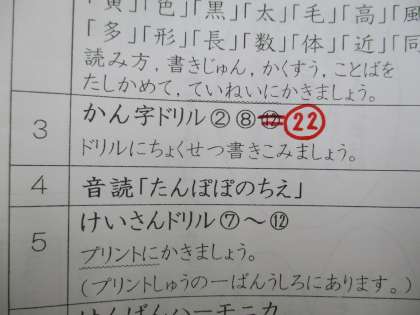 「黄」「色」「黒」「太」「毛」「高」「風
「多」「形」「長」「数」「体」「近」「同
読み方,書きじゅん,かくすう,ことばを
たしかめて,ていねいにかきましょう。
3
かん字ドリル②⑧⑫ 22
ドリルにちょくせつ書きこみましょう。
4
音読「たんぽぽのちえ」
5
けいさんドリル⑦～⑫
プリントにかきましょう。
(プリントしゅうの一ばんうしろにあります。)
けんばんハーモニカ